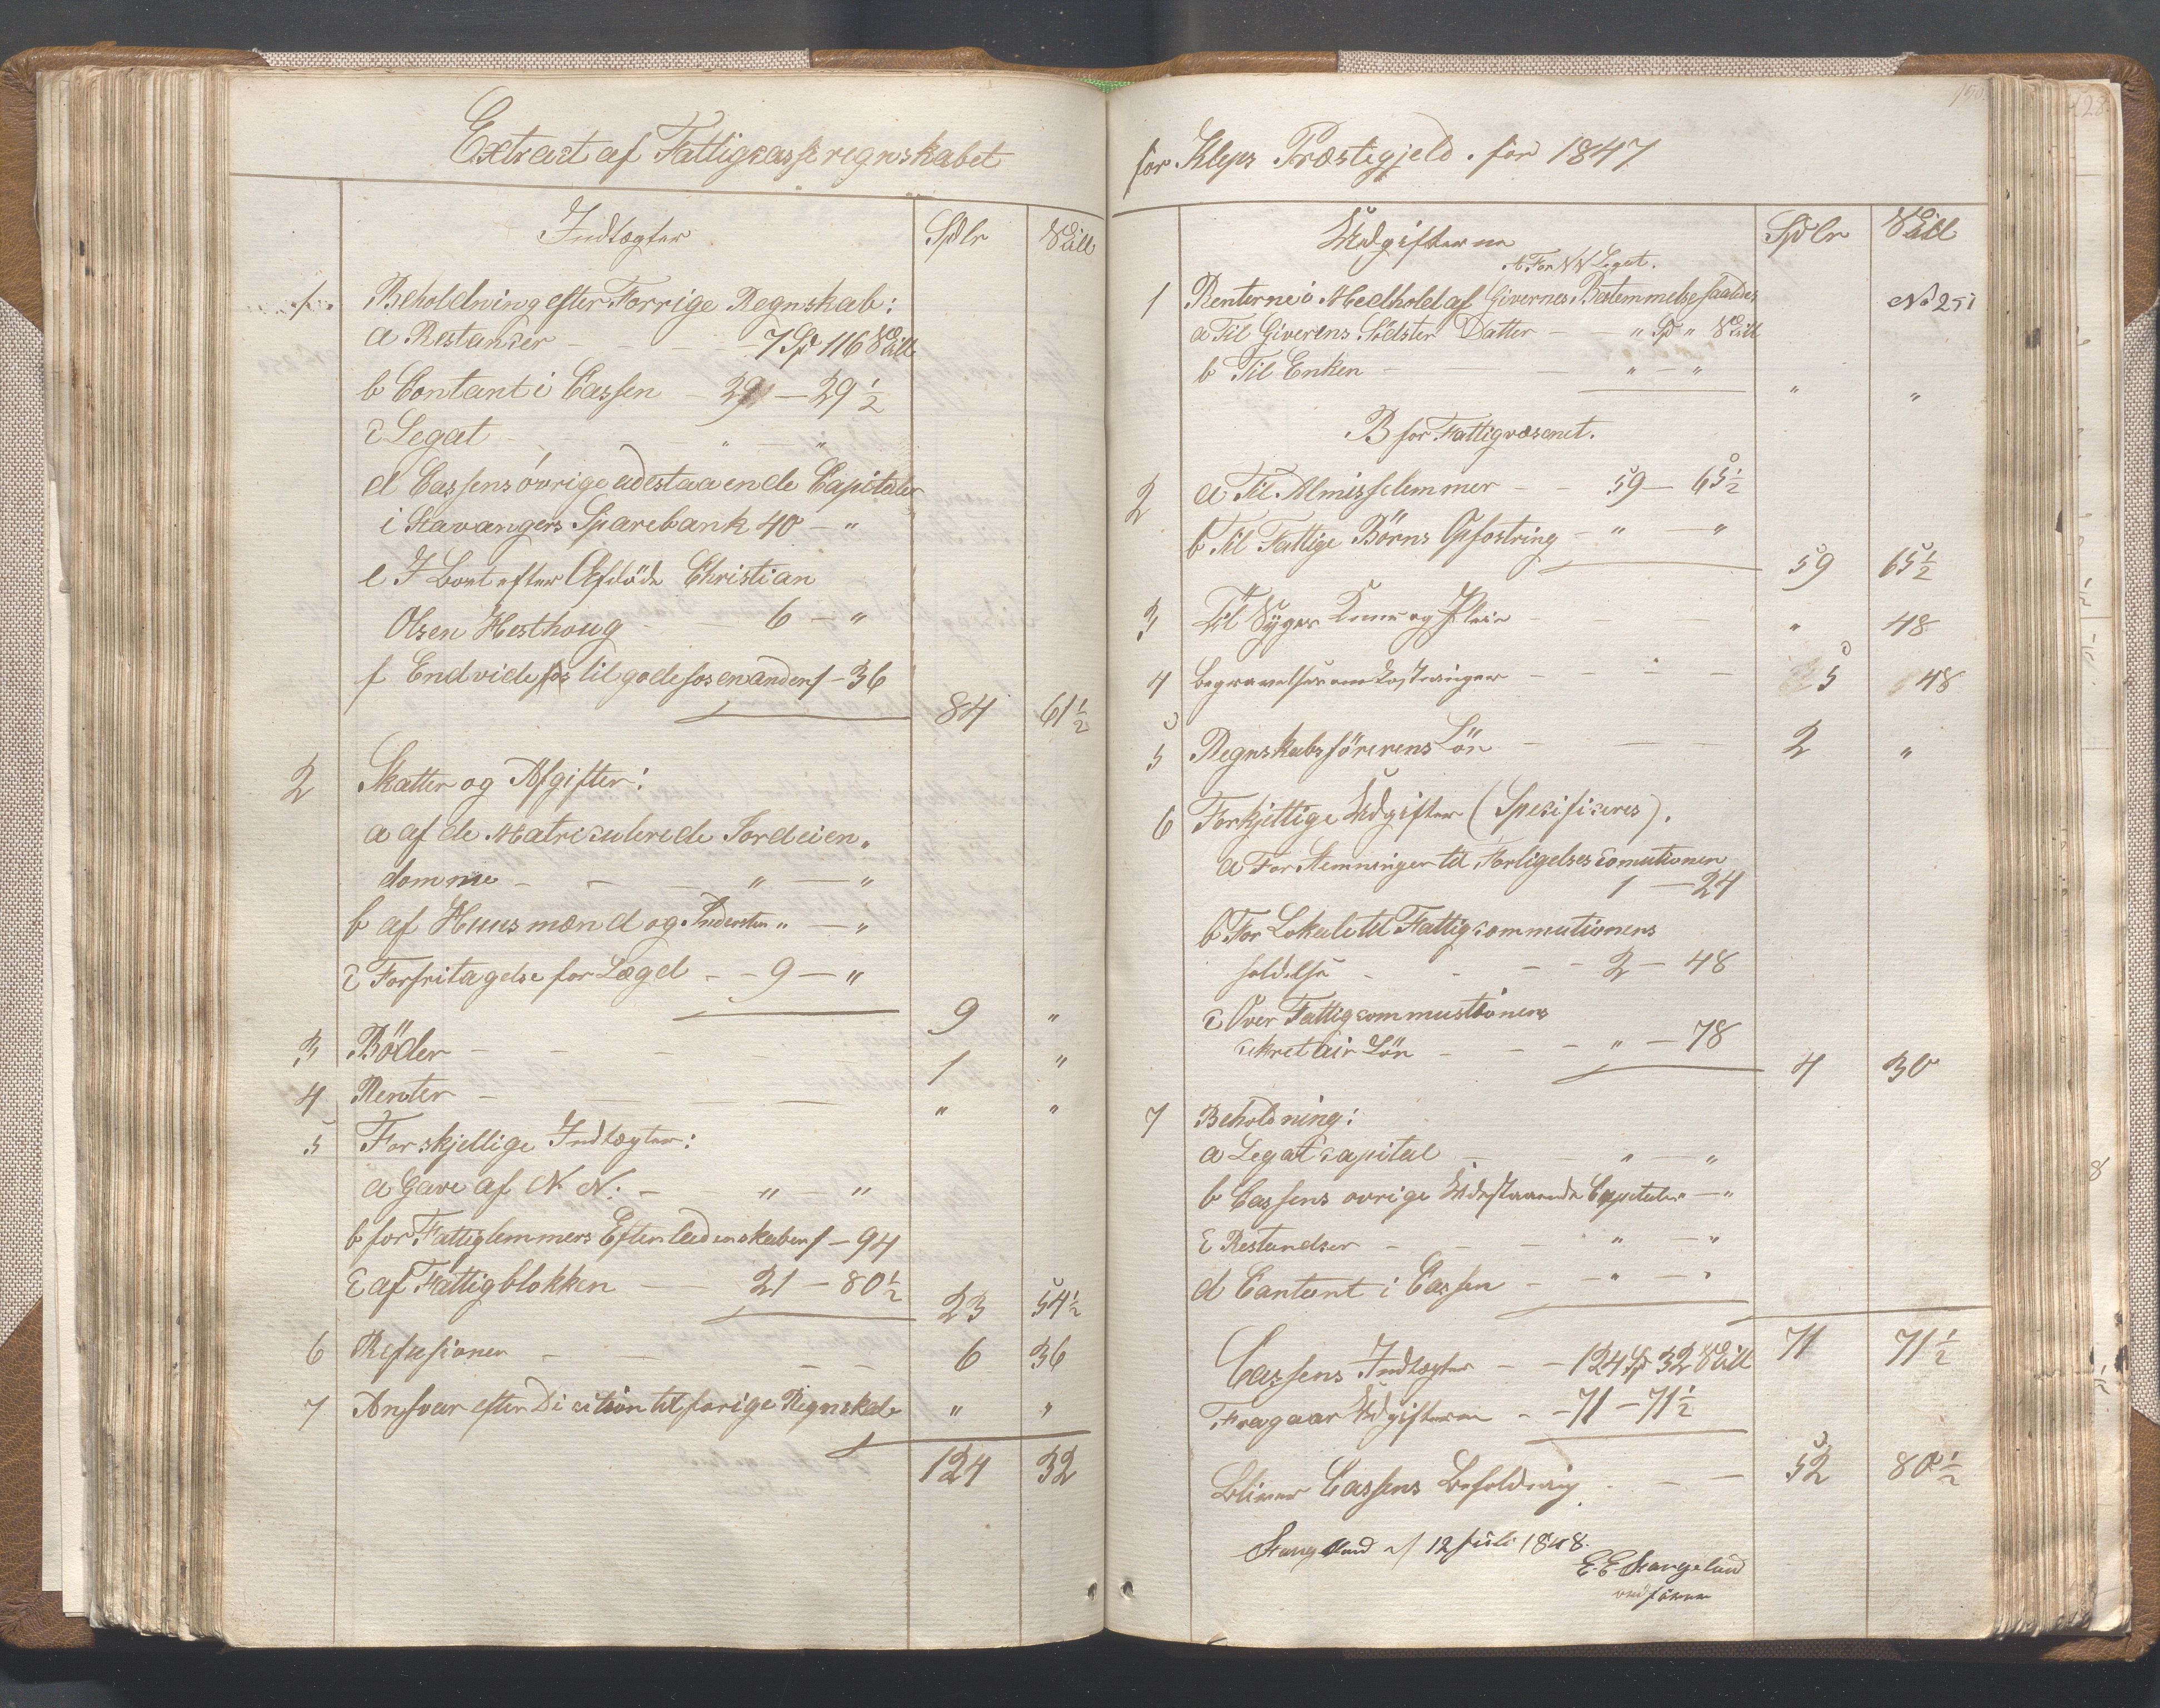 Extract af Fattigcasseregnskabet
Indtægter Spdlr Skill
1 Beholdning efter Forrige Regnskab:
a Restancer - - - 7 Sp 116 Skill
b Contant i Cassen - 29 - 29 1/2
c Legat - - " "
d Cassens övrige udestaaende Capitaler
i Stavangers Sparebank 40 - "
e I Boet efter Afdöde Christian
Olsen Hesthoug - - 6 - "
f Endvide til gode hos en anden 1 - 36
84 61 1/2
2 Skatter og Afgifter:
a af de Matriculerede Jordeien„
domme - - - " - "
b af Huusmænd og Inderster " - "
c Forfritagelse for Lægd - - 9 - "
9 "
3 Böder - - - - 1 "
4 Renter - - - - " "
5 Forskjellige Indtægter:
a Gave af N. N: - - " - "
b for Fattiglemmers Efterladenskaber 1 - 94
c af Fattigblokken - 21 - 80 1/2
23 54 1/2
6 Refusioner - - - - 6 36
7 Ansvar efter til forige Regnskab " "
124 32
150
for Kleps Præstegjeld. for 1847
Udgifterne Spdlr Skill
A For NN Legat.
1 Renterne i Medhold af Givernes Bestemmelse No 251
a Til Giverens Datter - - " Sp " Skill
b Til Enken - - - " - "
" "
B for Fattigvæsenet.
2 a Til Almisselemmer - - 59 - 65 1/2
b Til Fattige Börns Opfostring - " - "
59 65 1/2
3 Til Syges Kuur og Pleie - - - " 48
4 Begravelsesomkostninger - - - - 5 48
5 Regnskabsförerens Lön - - - 2 "
6 Forskjellige Udgifter (Specificeres).
a For Stemninger til Forligelses
1 - 24
b For Lokale til Fattigcommutioners
holdelse - - - - 2 - 48
c Over Fattigcommustioners
sekretair Lön - - - " - 78
4 30
7 Beholdning:
a Legat capital - - " - "
b Cassens ovrige Udestaaende Capitaler " - "
c Restandser - - - " - "
d Cantant i Cassen - - " - "
71 71 1/2
Cassens Indtægter - - 124 Sp 32 Skill
Fragaar Udgifterne - - 71 - 71 1/2
Bliver Cassens Beholdning - - - 52 80 1/2
Stangeland d/ 12 Juli 1848.
E. E Stangeland